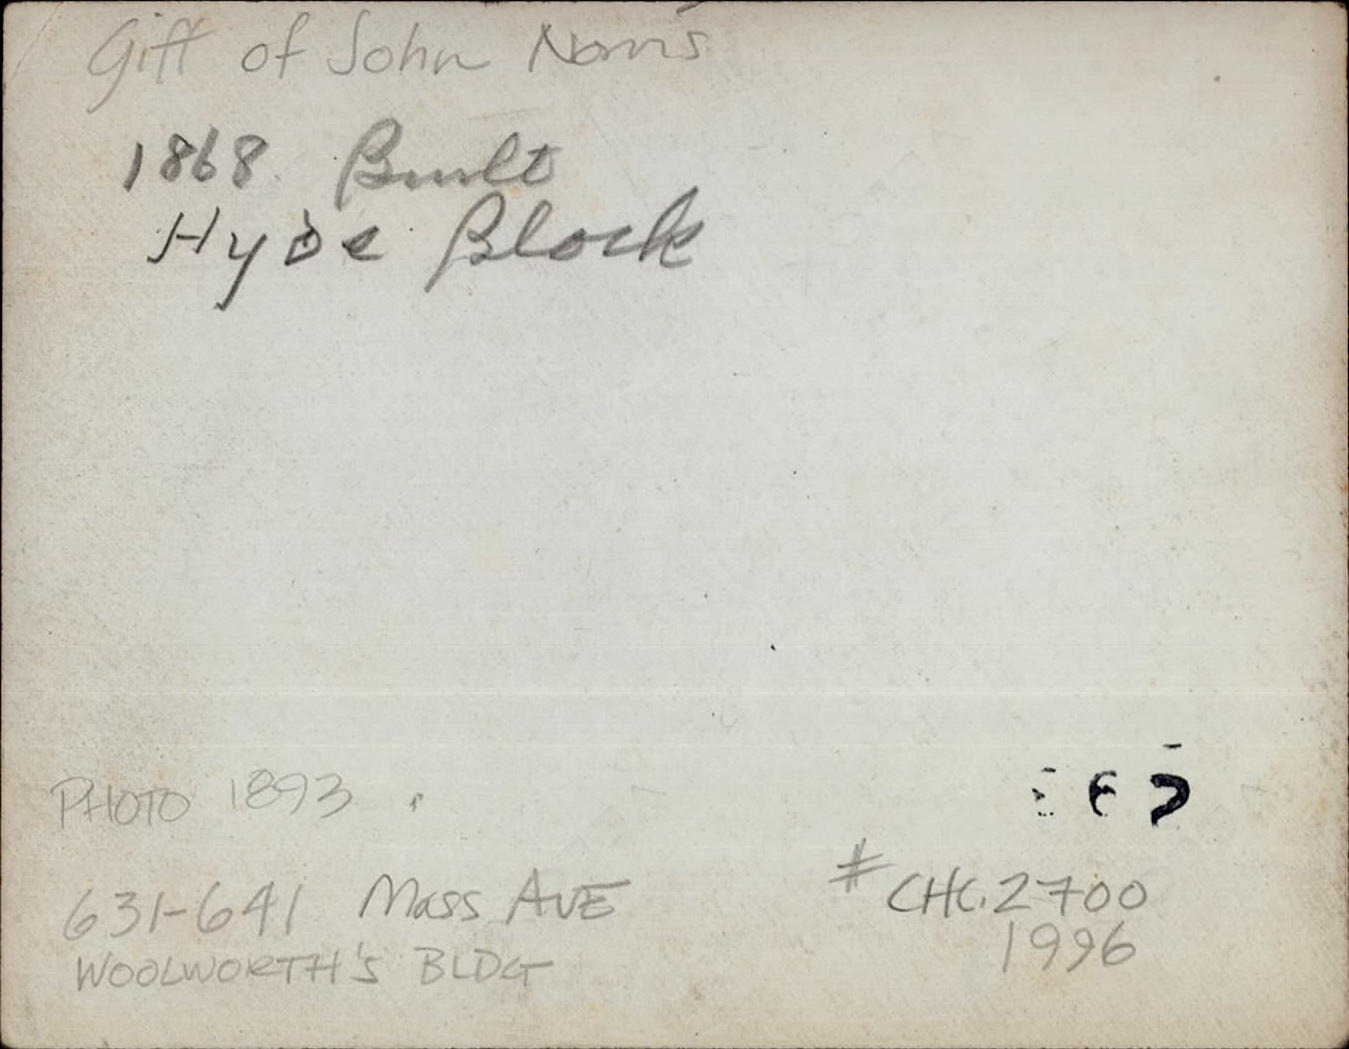 Gift of John Norris
1868. Built
Hyde Block
PHOTO 1893
631-641 Mass AVE
WOOLWORTH'S BLDG
# CHC.2700
1996